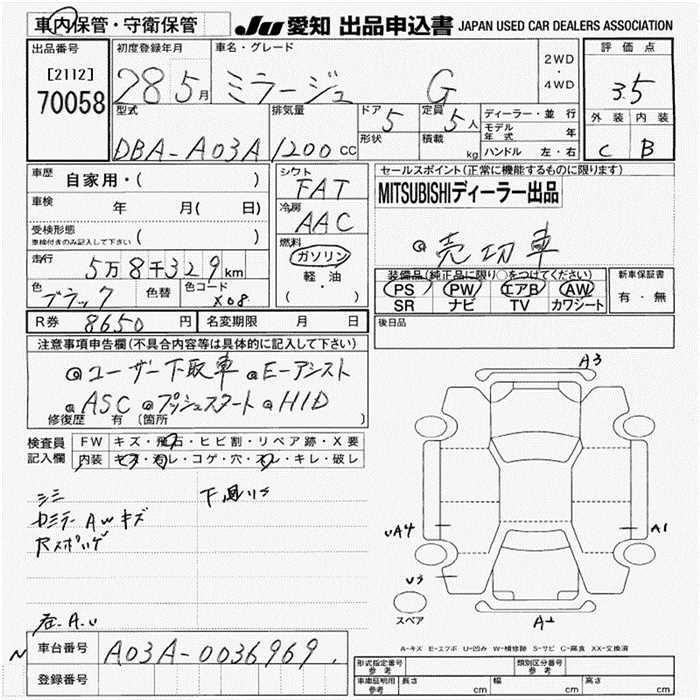 車内保管・守衛保管
JU 愛知 出品申込書 JAPAN USED CAR DEALERS ASSOCIATION
出品番号
[2112]
70058
初度登録年月
28 5月
車名・グレード
ミラージュ G
2WD
・
4WD
評価点
3.5
外装 内装
C B
型式
DBA-A03A
排気量
1200cc
ドア 5
形状
定員 5人
積載 kg
ディーラー・並行
モデル年式 年
ハンドル 左・右
車歴 自家用・( )
車検 年 月( 日)
受検形態
車検付きのみ記入して下さい ( )
走行
5万8千329km
色 ブラック 色替 色コード X08
R券 8650円 名変期限 月 日
シフト
FAT
冷房
AAC
燃料
ガソリン
軽・油
( ・ )
セールスポイント(正常に機能するものに限ります)
MITSUBISHIディーラー出品
◎売切車
装備品(純正品に限り○をつけてください)
PS PW エアB AW
SR ナビ TV カワシート
新車保証書
有・無
後日品
注意事項申告欄(不具合内容等は具体的に記入して下さい)
◎ユーザー下取車 ◎E-アシスト
◎ASC ◎プッシュスタート ◎HID
修復歴 有〔箇所 〕
検査員記入欄
FW キズ・飛石・ヒビ割・リペア跡・X要
内装 キズ・汚レ・コゲ・穴・スレ・キレ・破レ
シミ 下回りサ
AWキズ
A3
UA4
A1
U3
A2
スペア
A-キズ E-エクボ U-凹み W-補修跡 S-サビ C-腐食 XX-交換済
車台番号 A03A-0036969
登録番号
形式指定番号 参考
類別区分番号 参考
車庫証明用 参考 長さ cm 幅 cm 高さ cm